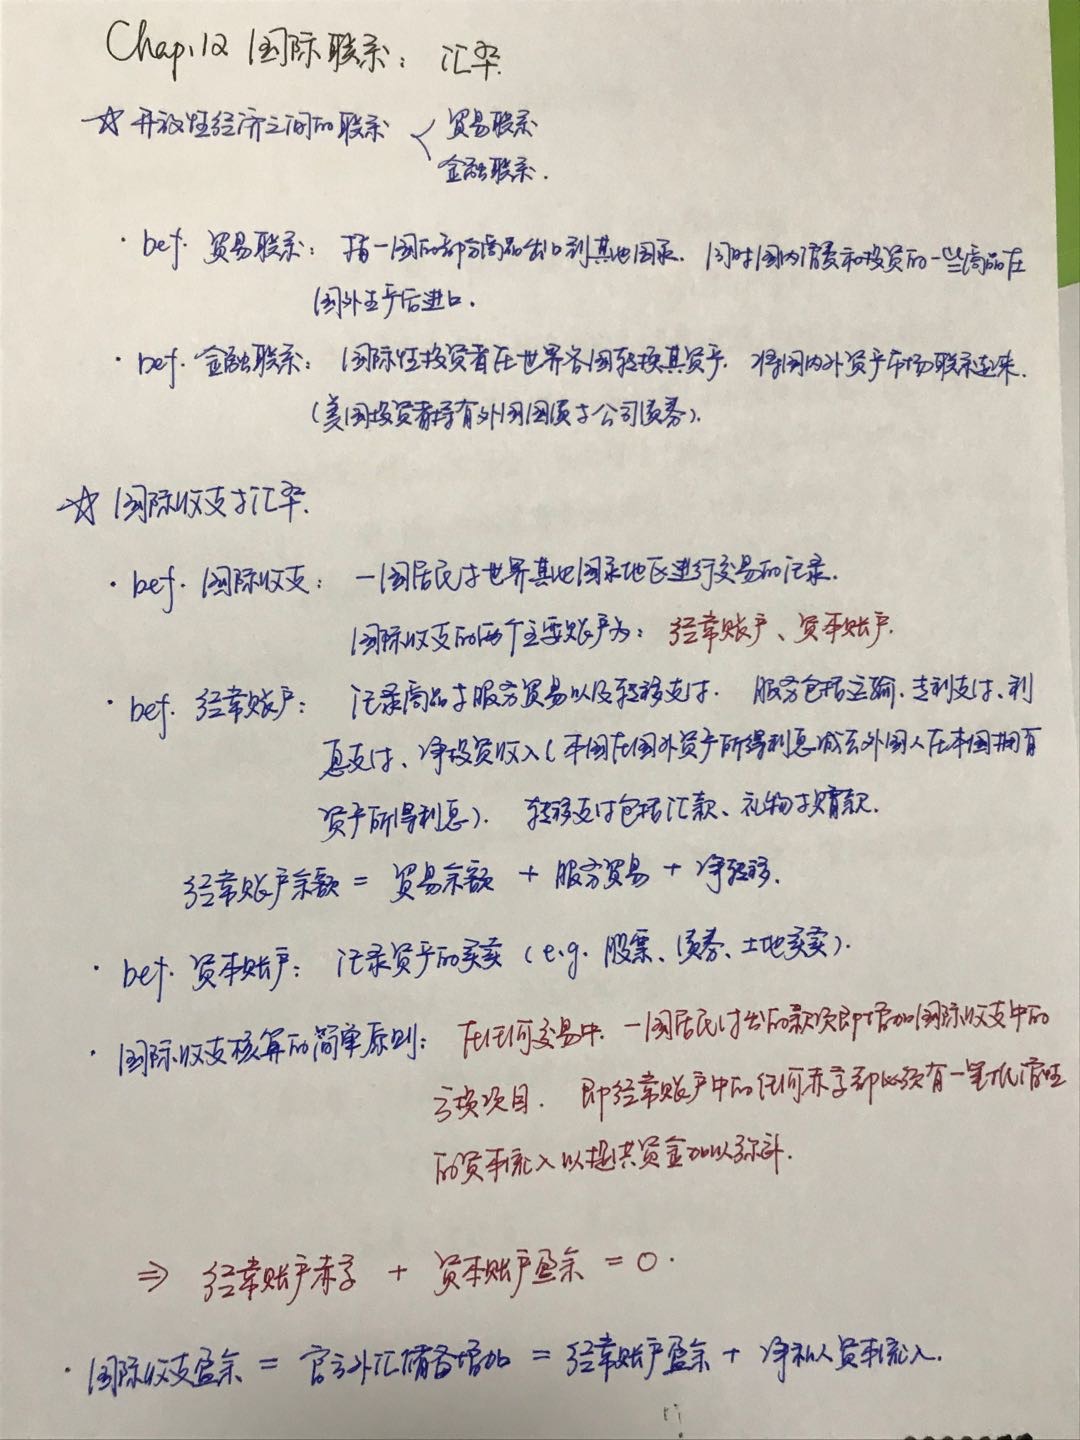 Chap.12 国际联系：汇率.
☆ 开放性经济之间的联系 < 贸易联系
金融联系.
· bef. 贸易联系：指一国的部分商品出口到其他国家. 同时国内消费和投资的一些商品在
国外生产后进口.
· bef. 金融联系：国际性投资者在世界各国转换其资产. 将国内外资产市场联系起来.
(美国投资者持有外国国债与公司债券).
☆ 国际收支与汇率.
· bef. 国际收支：一国居民与世界其他国家地区进行交易的记录.
国际收支的两个主要账户为：经常账户、资本账户.
· bef. 经常账户：记录商品与服务贸易以及转移支付. 服务包括运输、专利支付、利
息支付、净投资收入(本国在国外资产所得利息减去外国人在本国拥有
资产所得利息). 转移支付包括汇款、礼物与赠款.
经常账户余额 = 贸易余额 + 服务贸易 + 净转移.
· bef. 资本账户：记录资产的买卖 (e.g. 股票、债券、土地买卖).
· 国际收支核算的简单原则：在任何交易中. 一国居民付出的款项即增加国际收支中的
亏损项目. 即经常账户中的任何赤字都必须有一笔抵消性
的资本流入以提供资金加以弥补.
⇒ 经常账户赤字 + 资本账户盈余 = 0.
· 国际收支盈余 = 官方外汇储备增加 = 经常账户盈余 + 净私人资本流入.